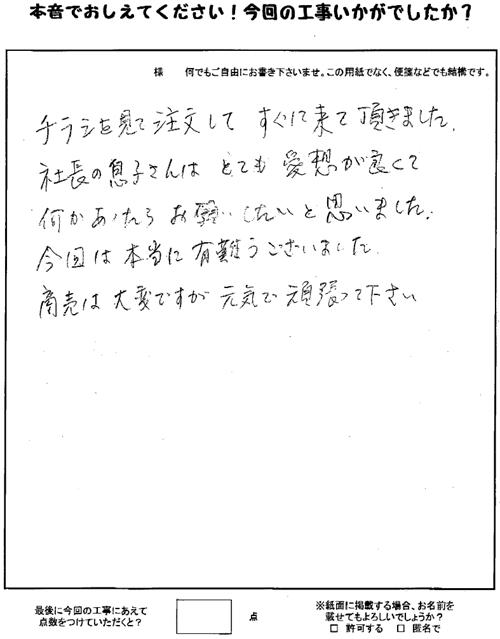 本音でおしえてください！今回の工事いかがでしたか？
様　何でもご自由にお書き下さいませ。この用紙でなく、便箋などでも結構です。
チラシを見て注文して すぐに来て頂きました。
社長の息子さんは とても 愛想が良くて
何かあったら お願いしたいと思いました。
今回は本当に有難うございました。
商売は大変ですが 元気で頑張って下さい
最後に今回の工事にあえて
点数をつけていただくと？
点
※紙面に掲載する場合、お名前を
載せてもよろしいでしょうか？
□ 許可する　□ 匿名で